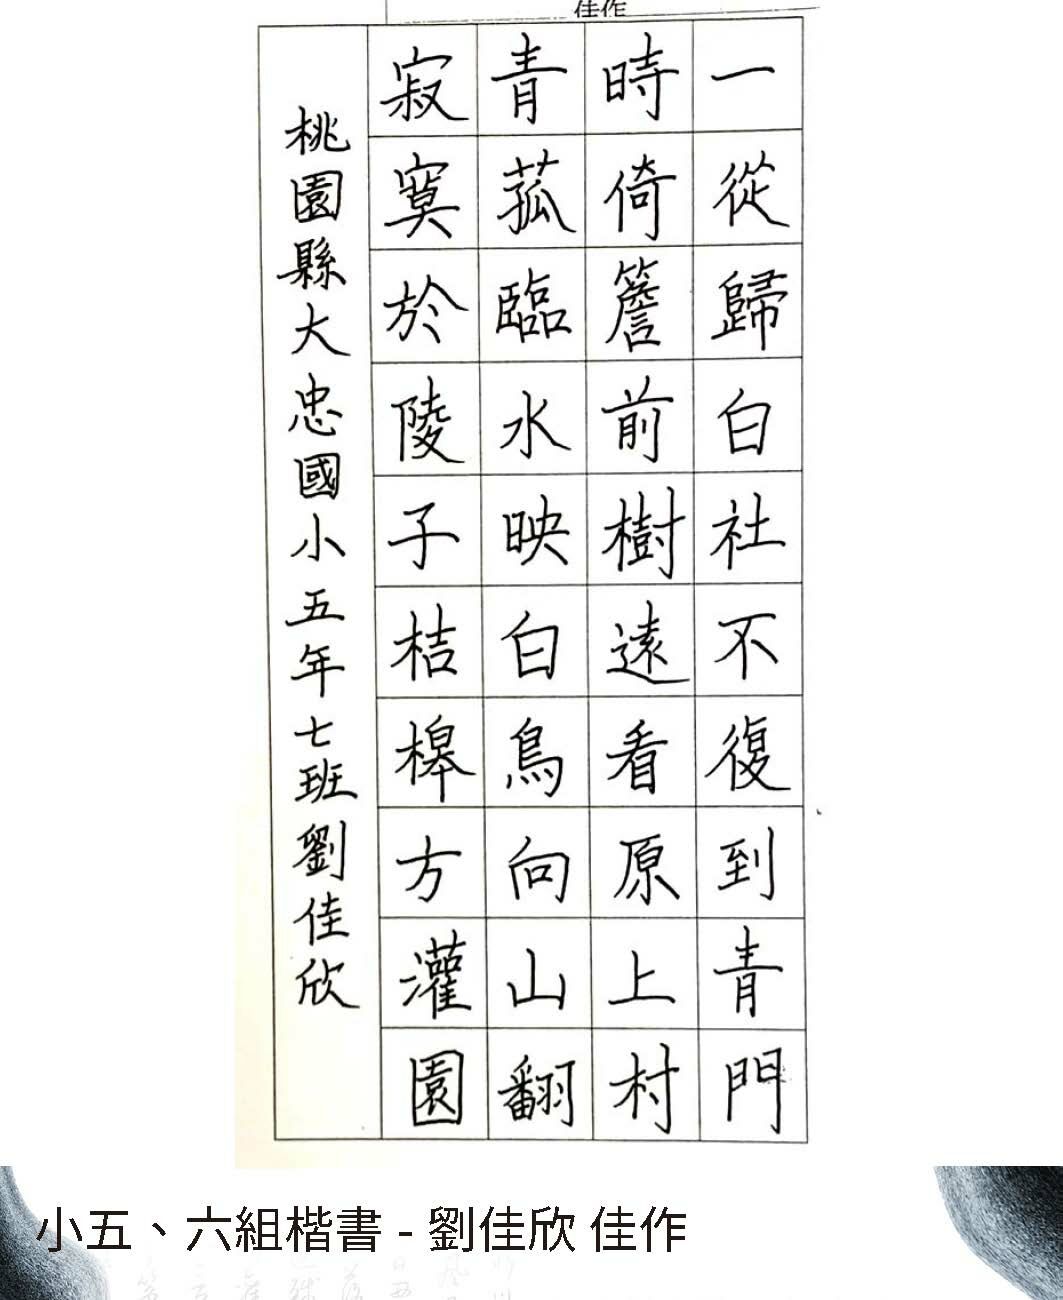 佳作
一從歸白社不復到青門
時倚簷前樹遠看原上村
青菰臨水映白鳥向山翻
寂寞於陵子桔槔方灌園
桃園縣大忠國小五年七班劉佳欣
小五、六組楷書 - 劉佳欣 佳作